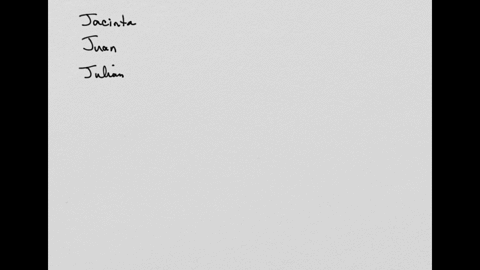 Jacinta
Juan
Julian